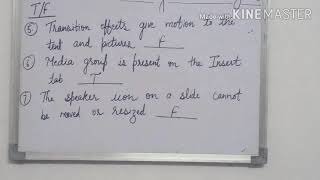 Made with KINEMASTER
T/F
⑤ Transition effects give motion to the
text and pictures F
⑥ Media group is present on the Insert
tab T
⑦ The speaker icon on a slide cannot
be moved or resized F